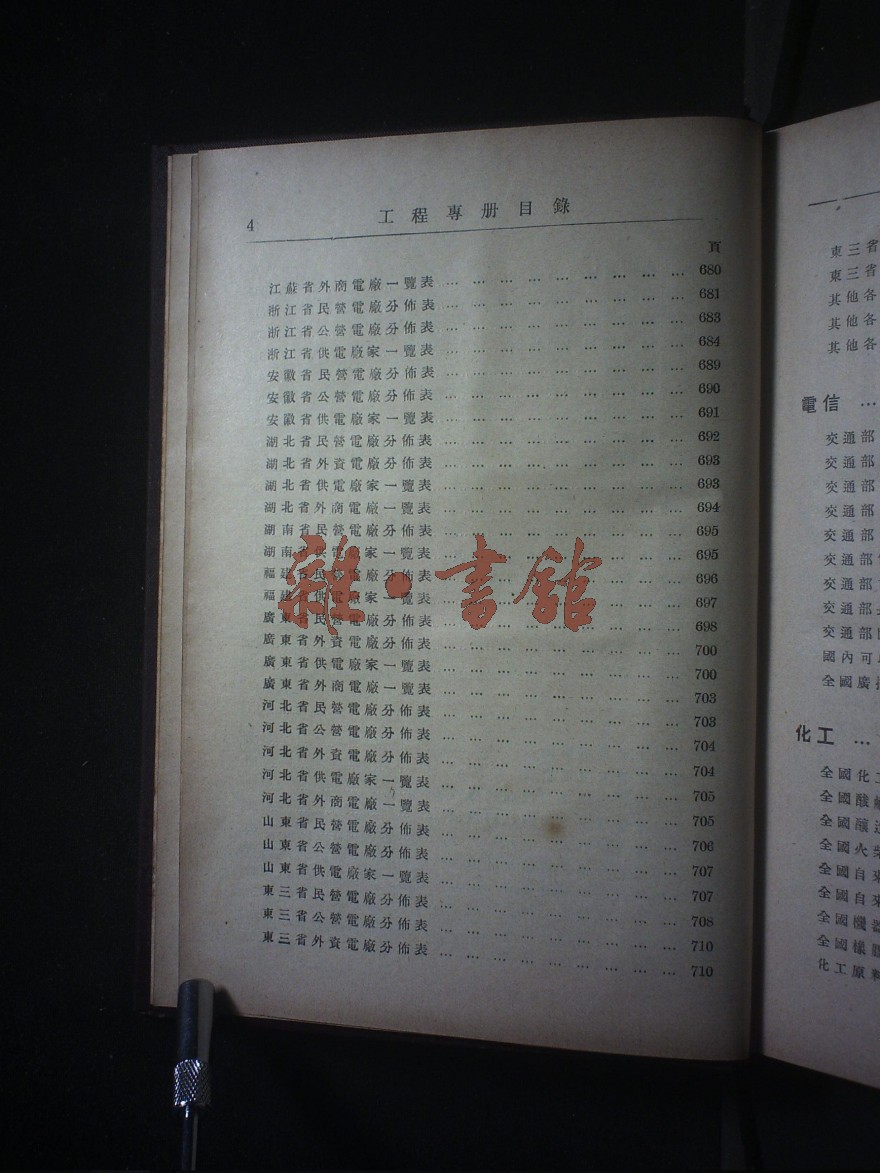 4 工程專册目錄
頁
江蘇省外商電廠一覽表 … … … … … … … … … 680
浙江省民營電廠分佈表 … … … … … … … … … 681
浙江省公營電廠分佈表 … … … … … … … … … 683
浙江省供電廠家一覽表 … … … … … … … … … 684
安徽省民營電廠分佈表 … … … … … … … … … 689
安徽省公營電廠分佈表 … … … … … … … … … 690
安徽省供電廠家一覽表 … … … … … … … … … 691
湖北省民營電廠分佈表 … … … … … … … … … 692
湖北省外資電廠分佈表 … … … … … … … … … 693
湖北省供電廠家一覽表 … … … … … … … … … 693
湖北省外商電廠一覽表 … … … … … … … … … 694
湖南省民營電廠分佈表 … … … … … … … … … 695
湖南省供電廠家一覽表 … … … … … … … … … 695
福建省民營電廠分佈表 … … … … … … … … … 696
福建省供電廠家一覽表 … … … … … … … … … 697
廣東省民營電廠分佈表 … … … … … … … … … 698
廣東省外資電廠分佈表 … … … … … … … … … 700
廣東省供電廠家一覽表 … … … … … … … … … 700
廣東省外商電廠一覽表 … … … … … … … … … 703
河北省民營電廠分佈表 … … … … … … … … … 703
河北省公營電廠分佈表 … … … … … … … … … 704
河北省外資電廠分佈表 … … … … … … … … … 704
河北省供電廠家一覽表 … … … … … … … … … 705
河北省外商電廠一覽表 … … … … … … … … … 705
山東省民營電廠分佈表 … … … … … … … … … 706
山東省公營電廠分佈表 … … … … … … … … … 707
山東省供電廠家一覽表 … … … … … … … … … 707
東三省民營電廠分佈表 … … … … … … … … … 708
東三省公營電廠分佈表 … … … … … … … … … 710
東三省外資電廠分佈表 … … … … … … … … … 710
雜·書館
東三省
東三省
其他各
其他各
其他各
電信 …
交通部
交通部
交通部
交通部
交通部
交通部
交通部
交通部
交通部
國內可
全國廣播
化工 …
全國化工
全國酸
全國釀造
全國火柴
全國自來
全國自來
全國機器
全國橡膠
化工原料